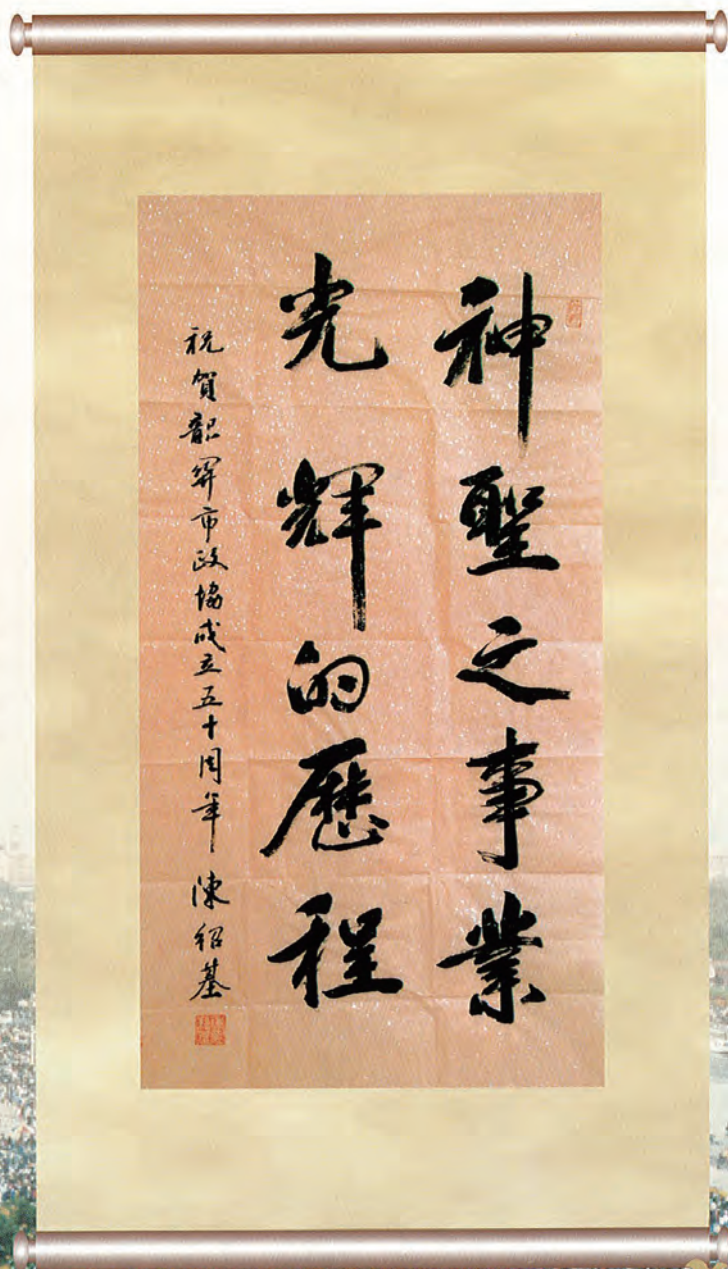 神聖之事業
光輝的歷程
祝賀韶関市政協成立五十周年 陳紹基